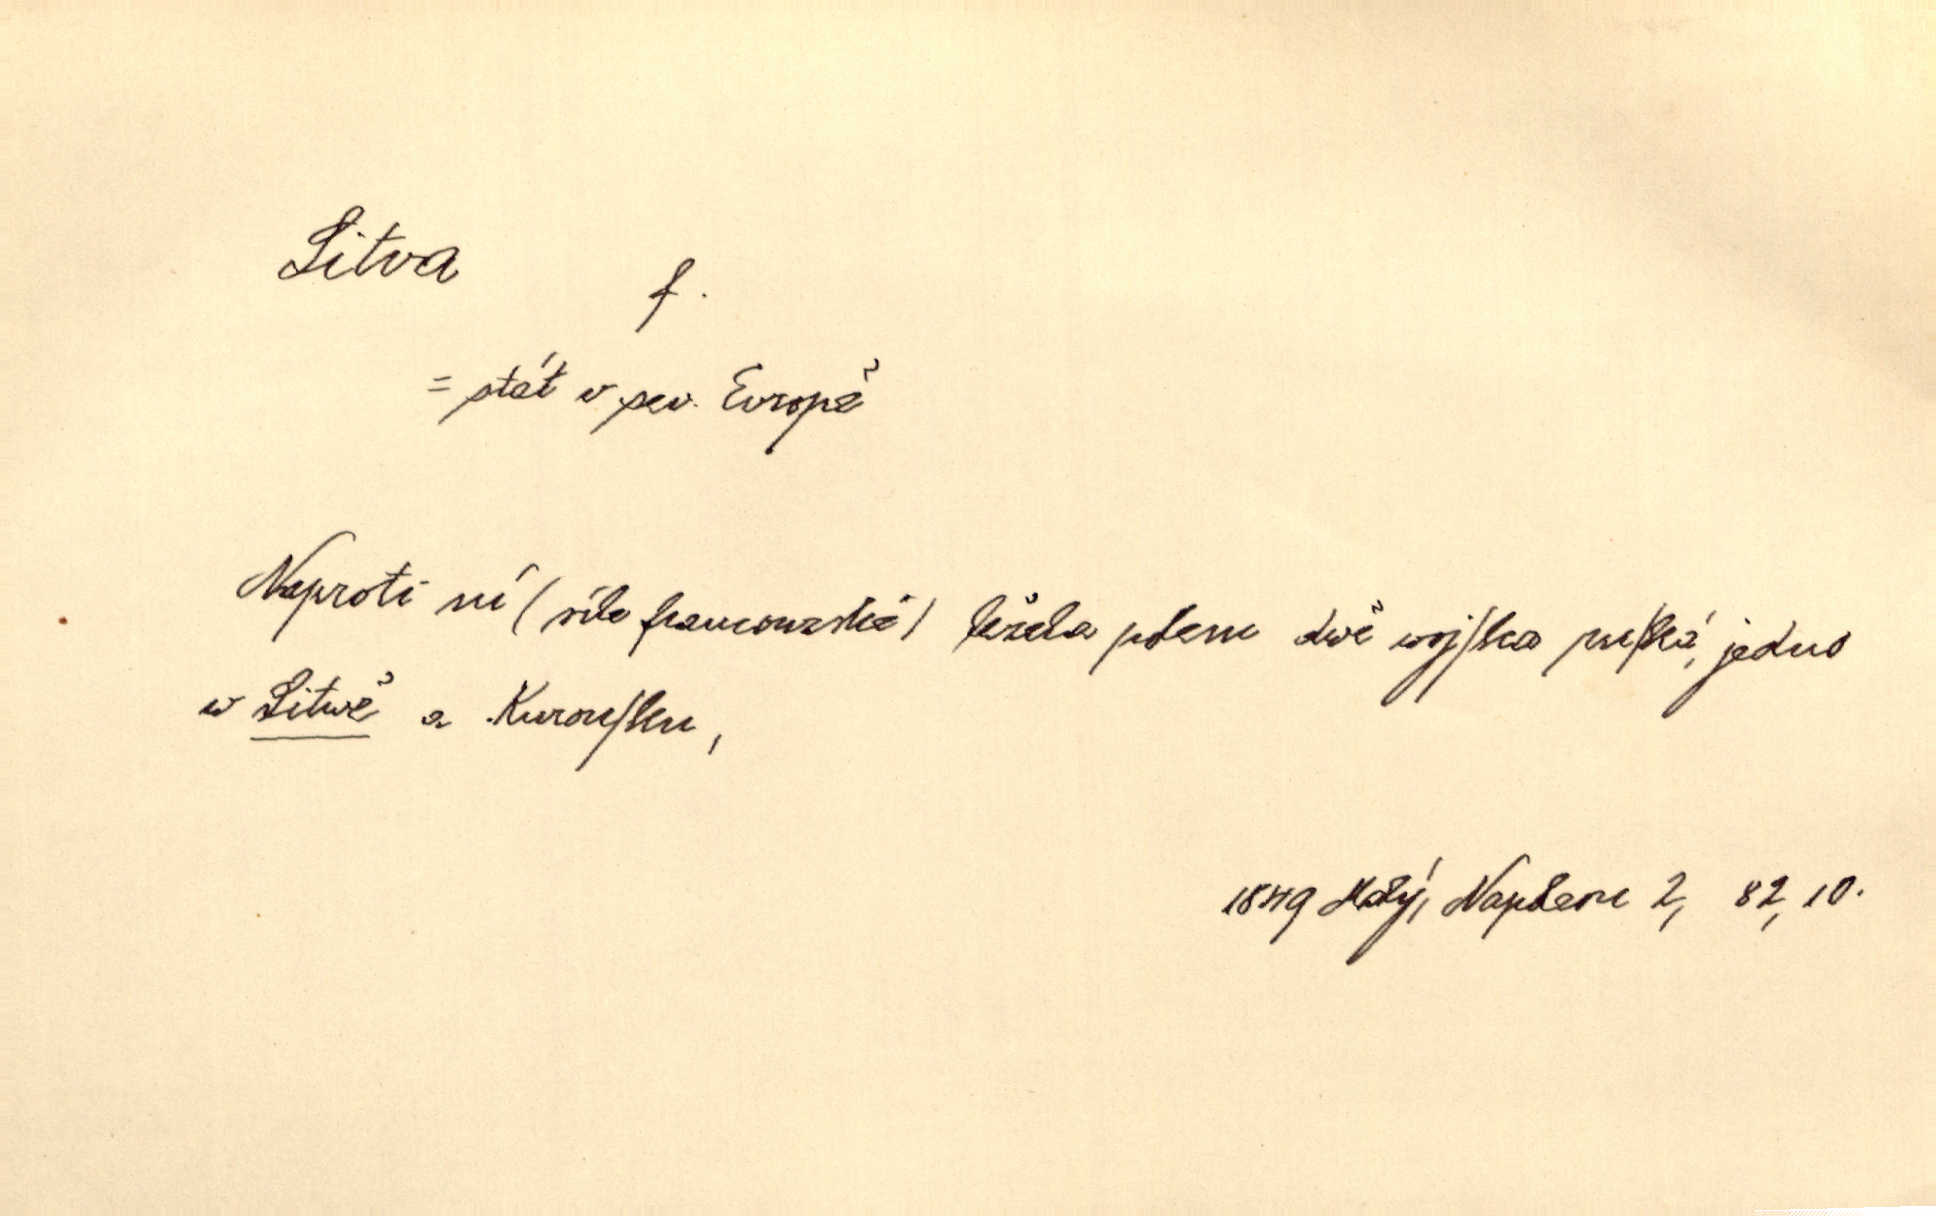 Litva
f.
= stát v sev. Evropě
Naproti ní (síle francouzské) ležela polem dwě wojſka ruſká, jedno
w Litwě a Kuronſku,
1849 Malý, Napoleon 2, 82, 10.